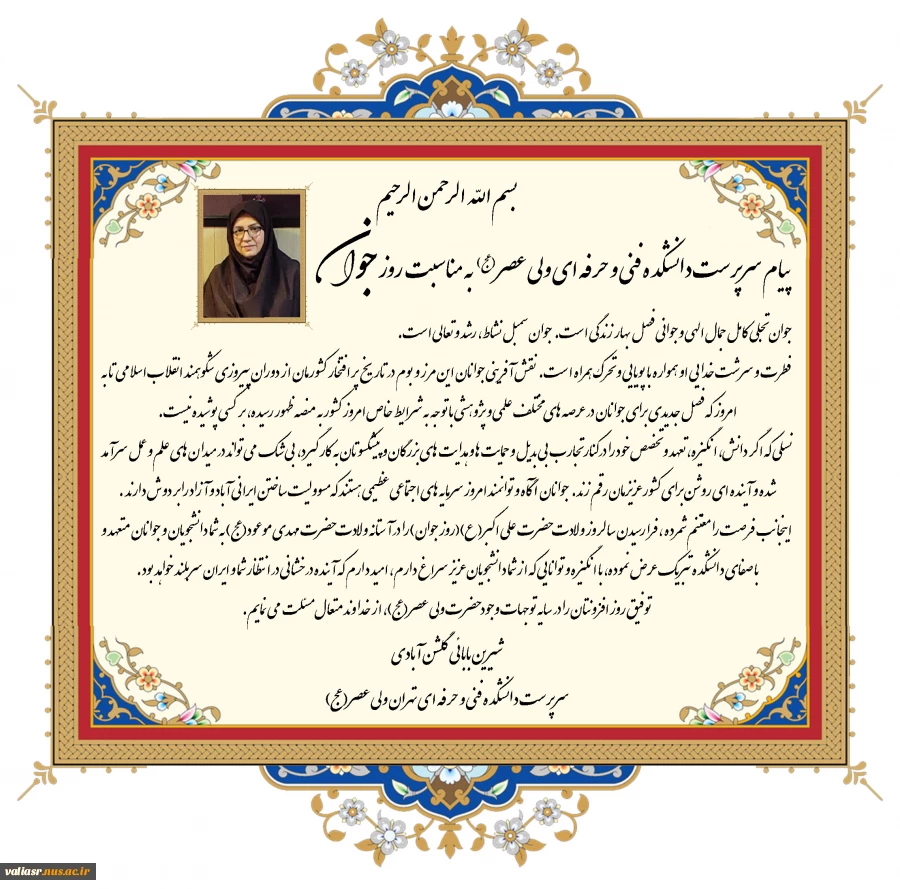 بسم الله الرحمن الرحیم
پیام سرپرست دانشکده فنی و حرفه ای ولی عصر(عج) به مناسبت روز جوان
جوان تجلی کامل جمال الهی و جوانی فصل بهار زندگی است. جوان سمبل نشاط، رشد و تعالی است.
فطرت و سرشت خدایی او همواره با پویایی و تحرک همراه است. نقش آفرینی جوانان این مرز و بوم در تاریخ پر افتخار کشورمان از دوران پیروزی شکوهمند انقلاب اسلامی تا به
امروز که فصل جدیدی برای جوانان در عرصه های مختلف علمی و پژوهشی با توجه به شرایط خاص امروز کشور به منصه ظهور رسیده، بر کسی پوشیده نیست.
نسلی که اگر دانش، انگیزه، تعهد و تخصص خود را در کنار تجارب بی بدیل و حمایت ها و هدایت های بزرگان و پیشکسوتان به کار گیرد، بی شک می تواند در میدان های علم و عمل سرآمد
شده و آینده ای روشن برای کشور عزیزمان رقم زند. جوانان آگاه و توانمند امروز سرمایه های اجتماعی عظیمی هستند که مسوولیت ساختن ایرانی آباد و آزاد را بر دوش دارند.
اینجانب فرصت را مغتنم شمرده، فرا رسیدن سالروز ولادت حضرت علی اکبر(ع)(روز جوان) را در آستانه ولادت حضرت مهدی موعود(عج) به شما دانشجویان و جوانان متعهد و
باصفای دانشکده تبریک عرض نموده، با انگیزه و توانایی که از شما دانشجویان عزیز سراغ دارم، امید دارم که آینده درخشانی در انتظار شما و ایران سربلند خواهد بود.
توفیق روز افزونتان را در سایه توجهات وجود حضرت ولی عصر(عج)، از خداوند متعال مسئلت می نمایم.
شیرین بابائی گلشن آبادی
سرپرست دانشکده فنی و حرفه ای تهران ولی عصر(عج)
valiasr.nus.ac.ir